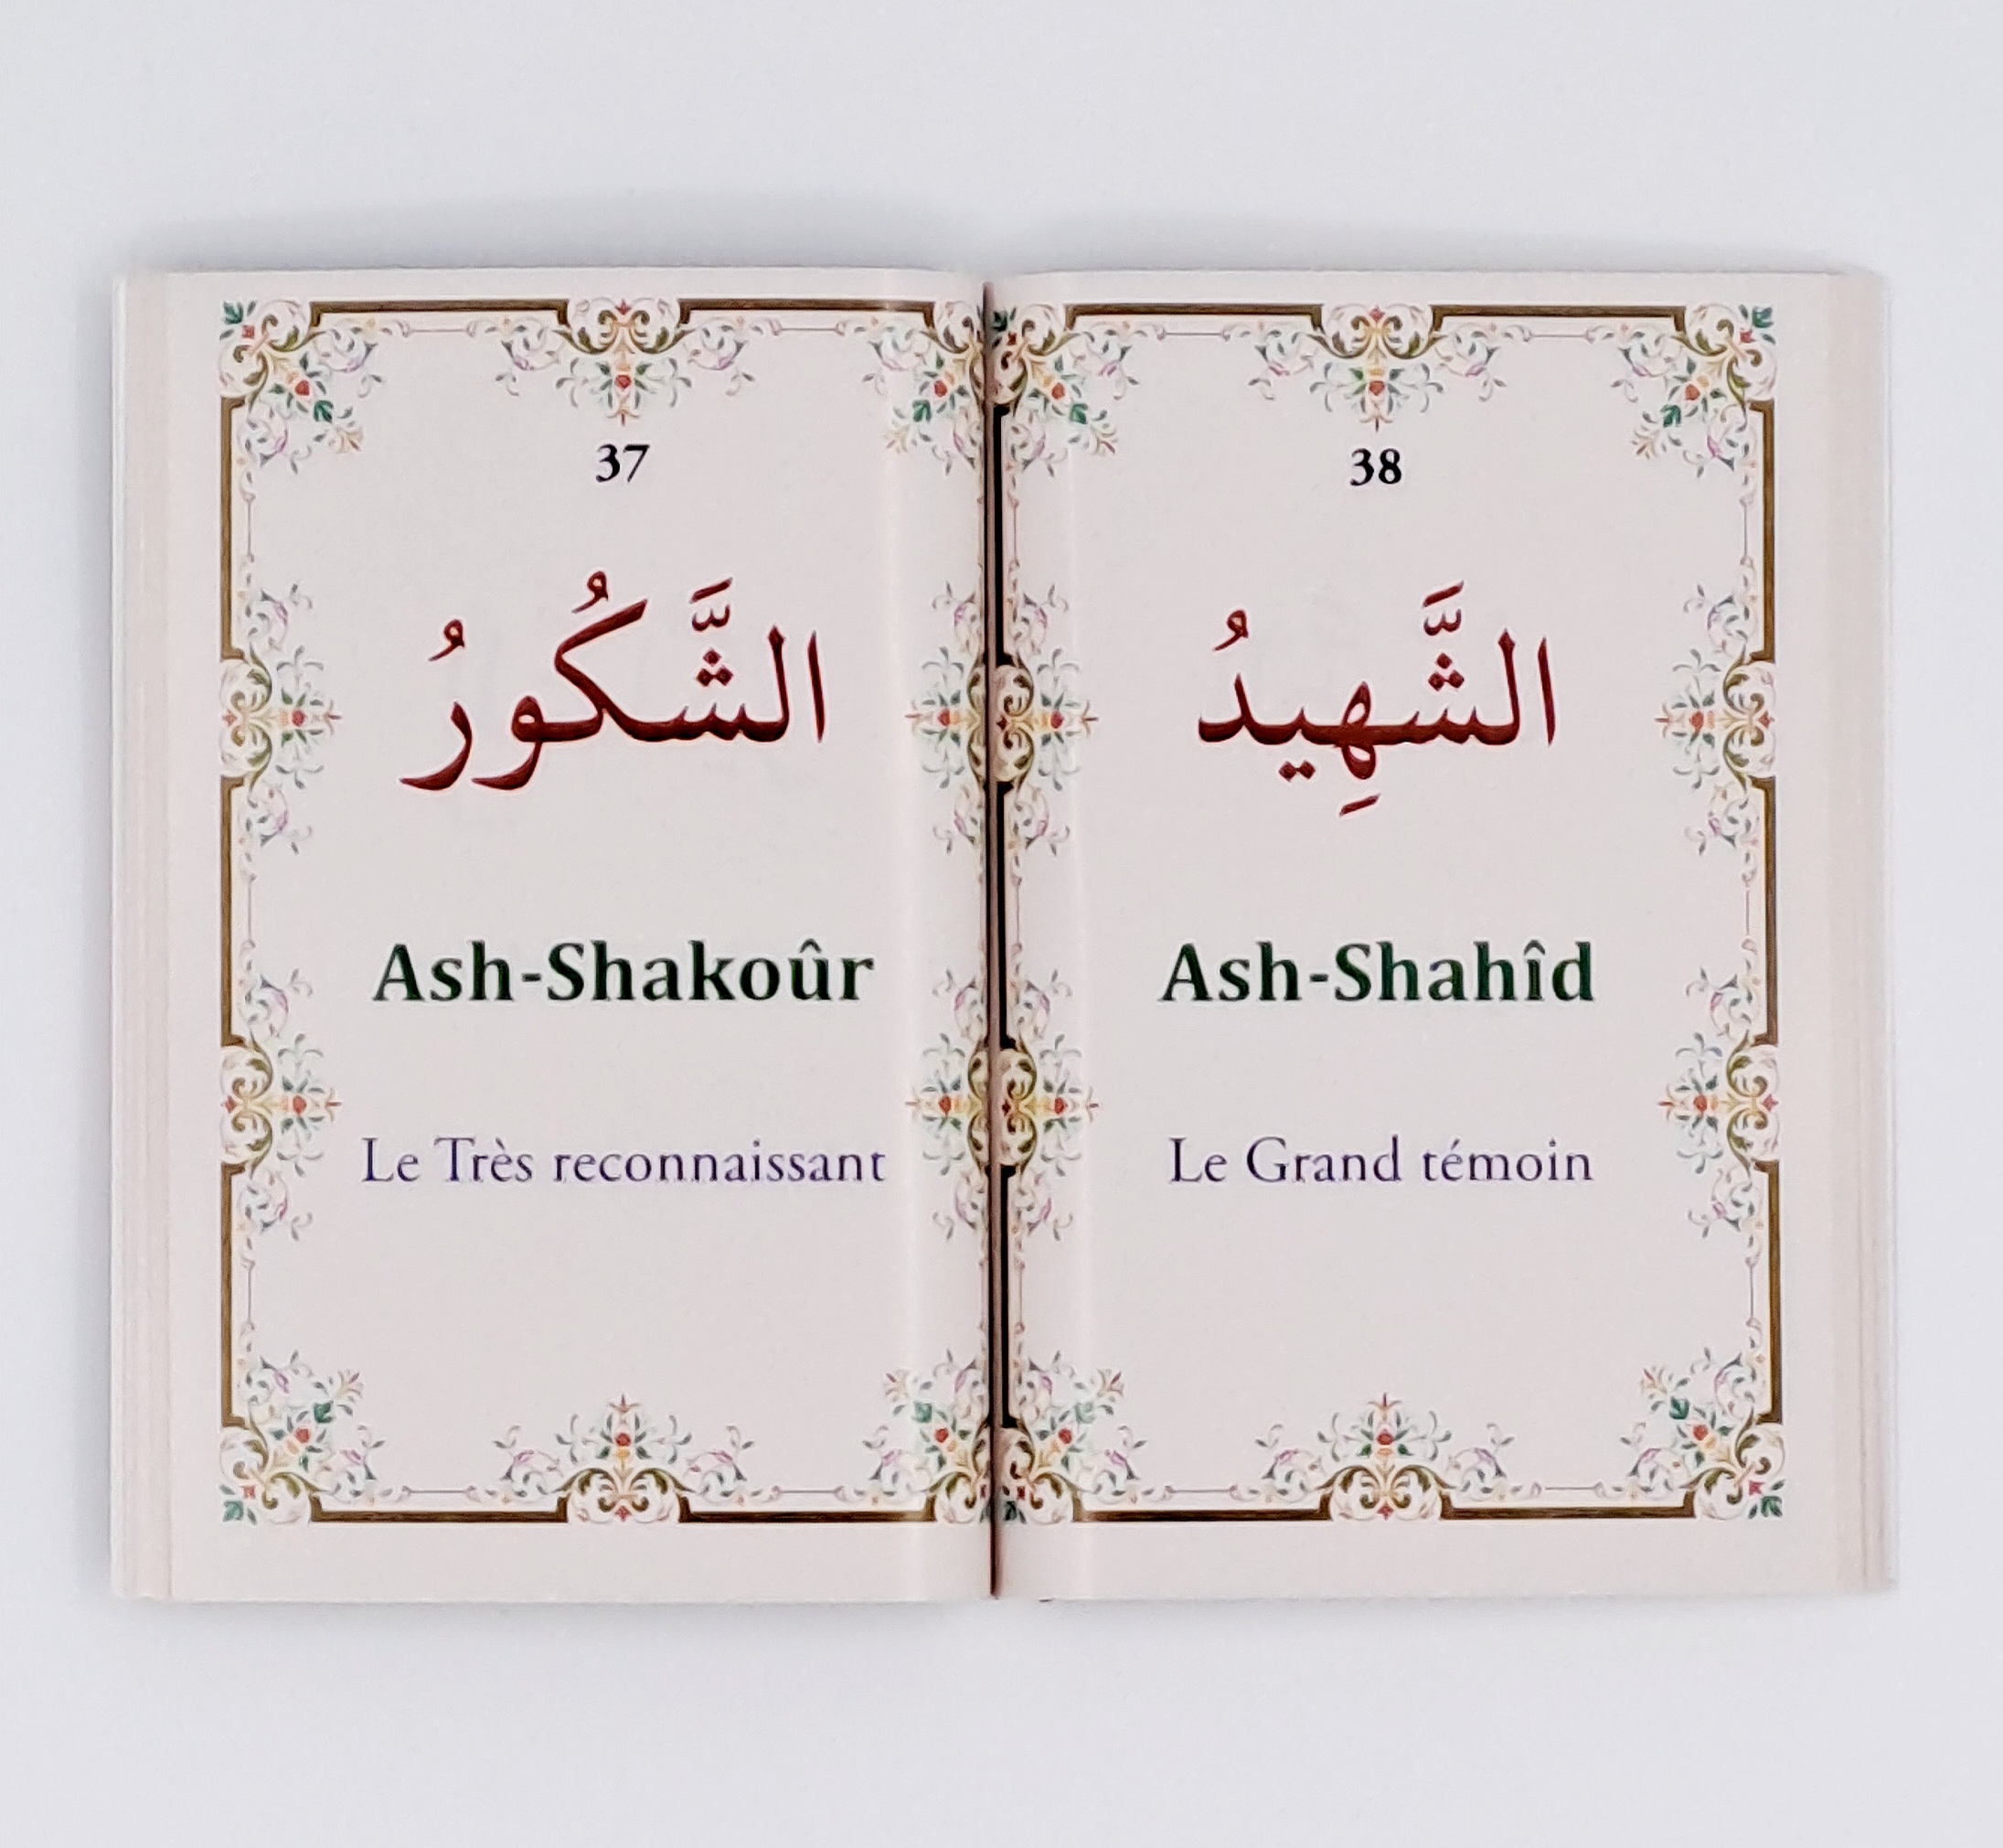 37
الشَّكُورُ
Ash-Shakoûr
Le Très reconnaissant
38
الشَّهِيدُ
Ash-Shahîd
Le Grand témoin